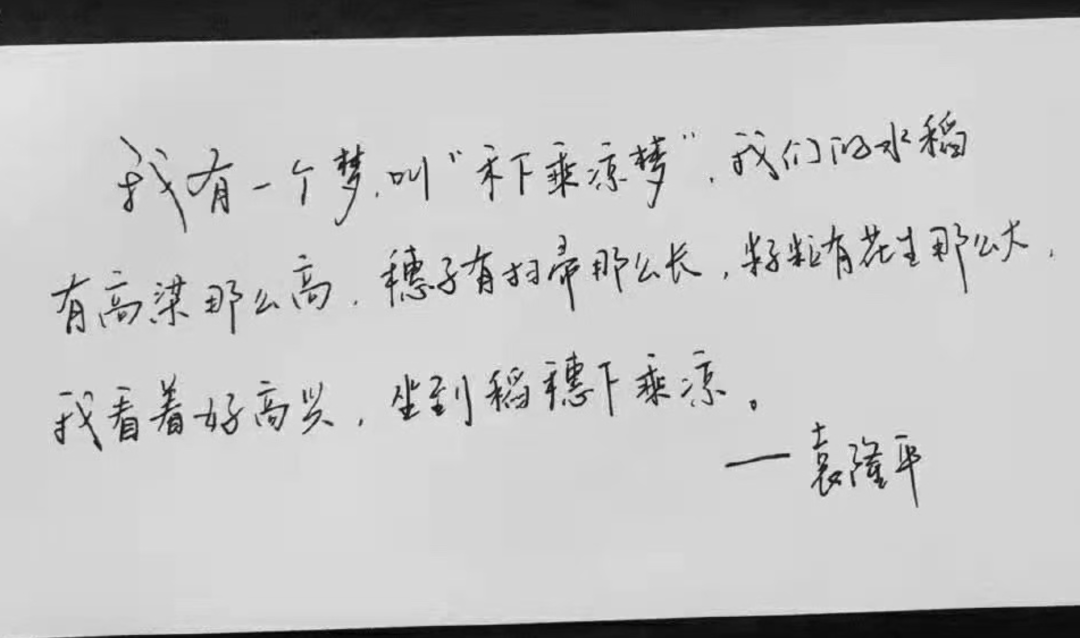 我有一个梦，叫“禾下乘凉梦”，我们的水稻
有高粱那么高，穗子有扫帚那么长，籽粒有花生那么大，
我看着好高兴，坐到稻穗下乘凉。
——袁隆平